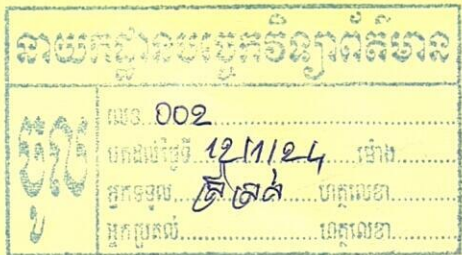 នាយកដ្ឋានបច្ចេកវិទ្យាព័ត៌មាន
ចូល
លេខ 002
មកដល់ថ្ងៃទី 12/1/24 ម៉ោង
អ្នកទទួល ហត្ថលេខា
អ្នកប្រគល់ ហត្ថលេខា